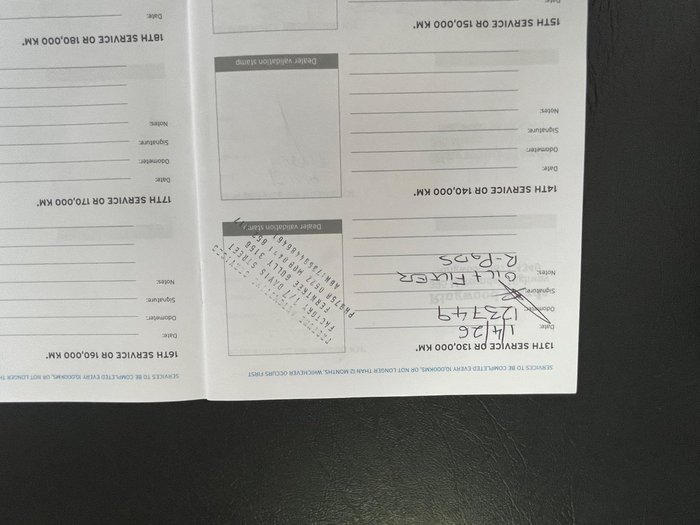 SERVICES TO BE COMPLETED EVERY 10,000KMS, OR NOT LONGER THAN 12 MONTHS, WHICHEVER OCCURS FIRST
13TH SERVICE OR 130,000 KM*
Date: 1/4/26
Odometer: 123749
Signature:
Notes: OIL + FILTER
R-PADS
DAVIS STREET
FERNTREE GULLY 3156
Dealer validation stamp
14TH SERVICE OR 140,000 KM*
Date:
Odometer:
Signature:
Notes:
Dealer validation stamp
15TH SERVICE OR 150,000 KM*
Date:
SERVICES TO BE COMPLETED EVERY 10,000KMS, OR NOT LONGER
16TH SERVICE OR 160,000 KM*
Date:
Odometer:
Signature:
Notes:
17TH SERVICE OR 170,000 KM*
Date:
Odometer:
Signature:
Notes:
18TH SERVICE OR 180,000 KM*
Date: